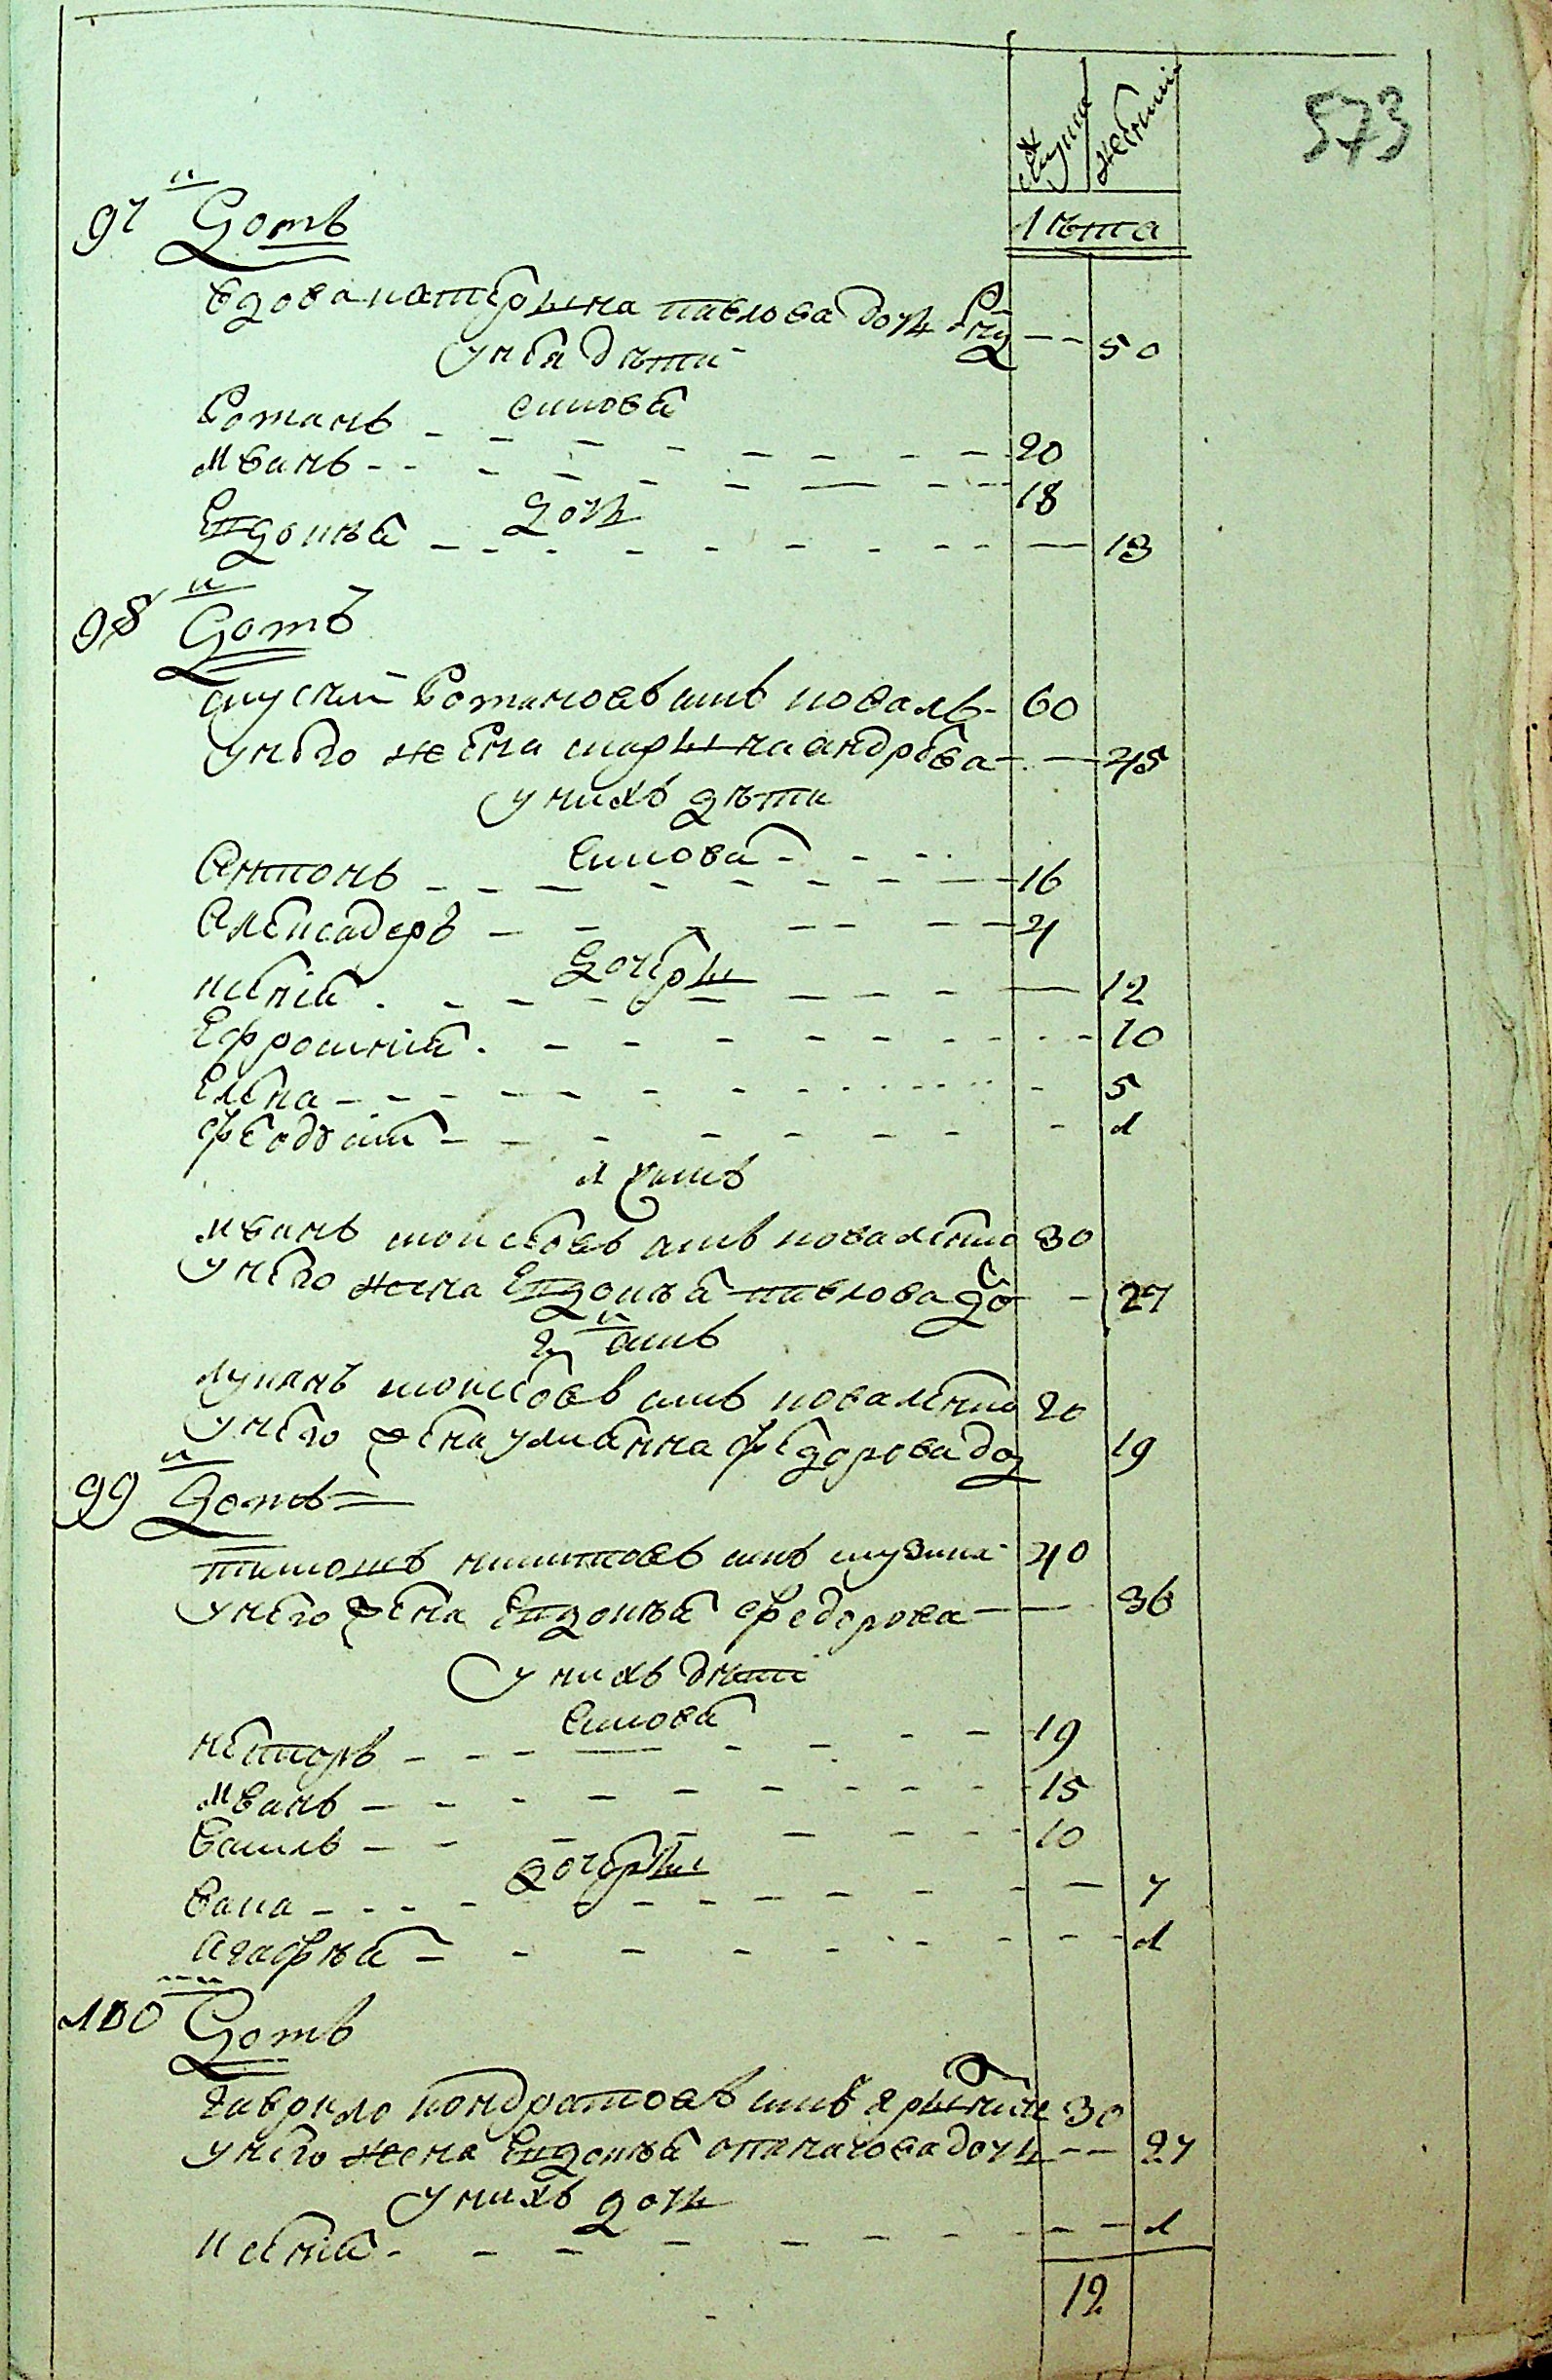 573
мужеска женски
лѣта
97 й домъ
вдова катерына павлова дочь 50
у нея дѣти
синовя
Романъ 20
Иванъ 18
дочь
Евдокія 13
98 й домъ
Романовъ синъ коваль 60
у него жена марына андрѣева 45
у нихъ дѣти
синовя
Антонъ 16
Алексадеръ 4
дочеры
ксенія 12
Ефросинія 10
Елена 5
феодосія 1
Иванъ моисеовъ синъ коваленко 30
у него жена Евдокѣя павлова до 27
2 й синъ
лукянъ моисеовъ синъ коваленко 20
у него жена улиянна федорова доч 19
99 й домъ
тимошъ никитовъ синъ 40
у него жена Евдокѣя федорова 36
у нихъ дѣти
синовя
несторъ 19
Иванъ 15
Василь 10
дочеры
Васа 7
Агафѣя 1
100 домъ
гаврило кондратовъ синъ 30
у него жена Евдокѣя дочь 27
у нихъ дочь
ксенія 1
12